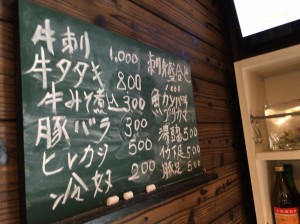 牛刺 1,000
牛タタキ 800
牛みそ煮込 300
豚バラ 300
ヒレカツ 500
冷奴 200
刺身盛合せ
魚カブト
ハラカマ
湯豆腐 500
イカ下足 500
豚足 500